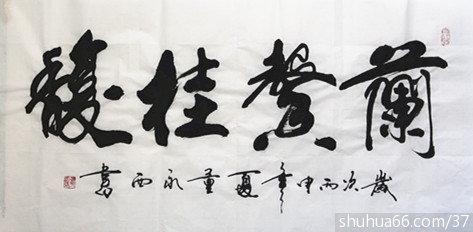 蘭馨桂馥
歲次丙申年夏董永西書
shuhua66.com/37